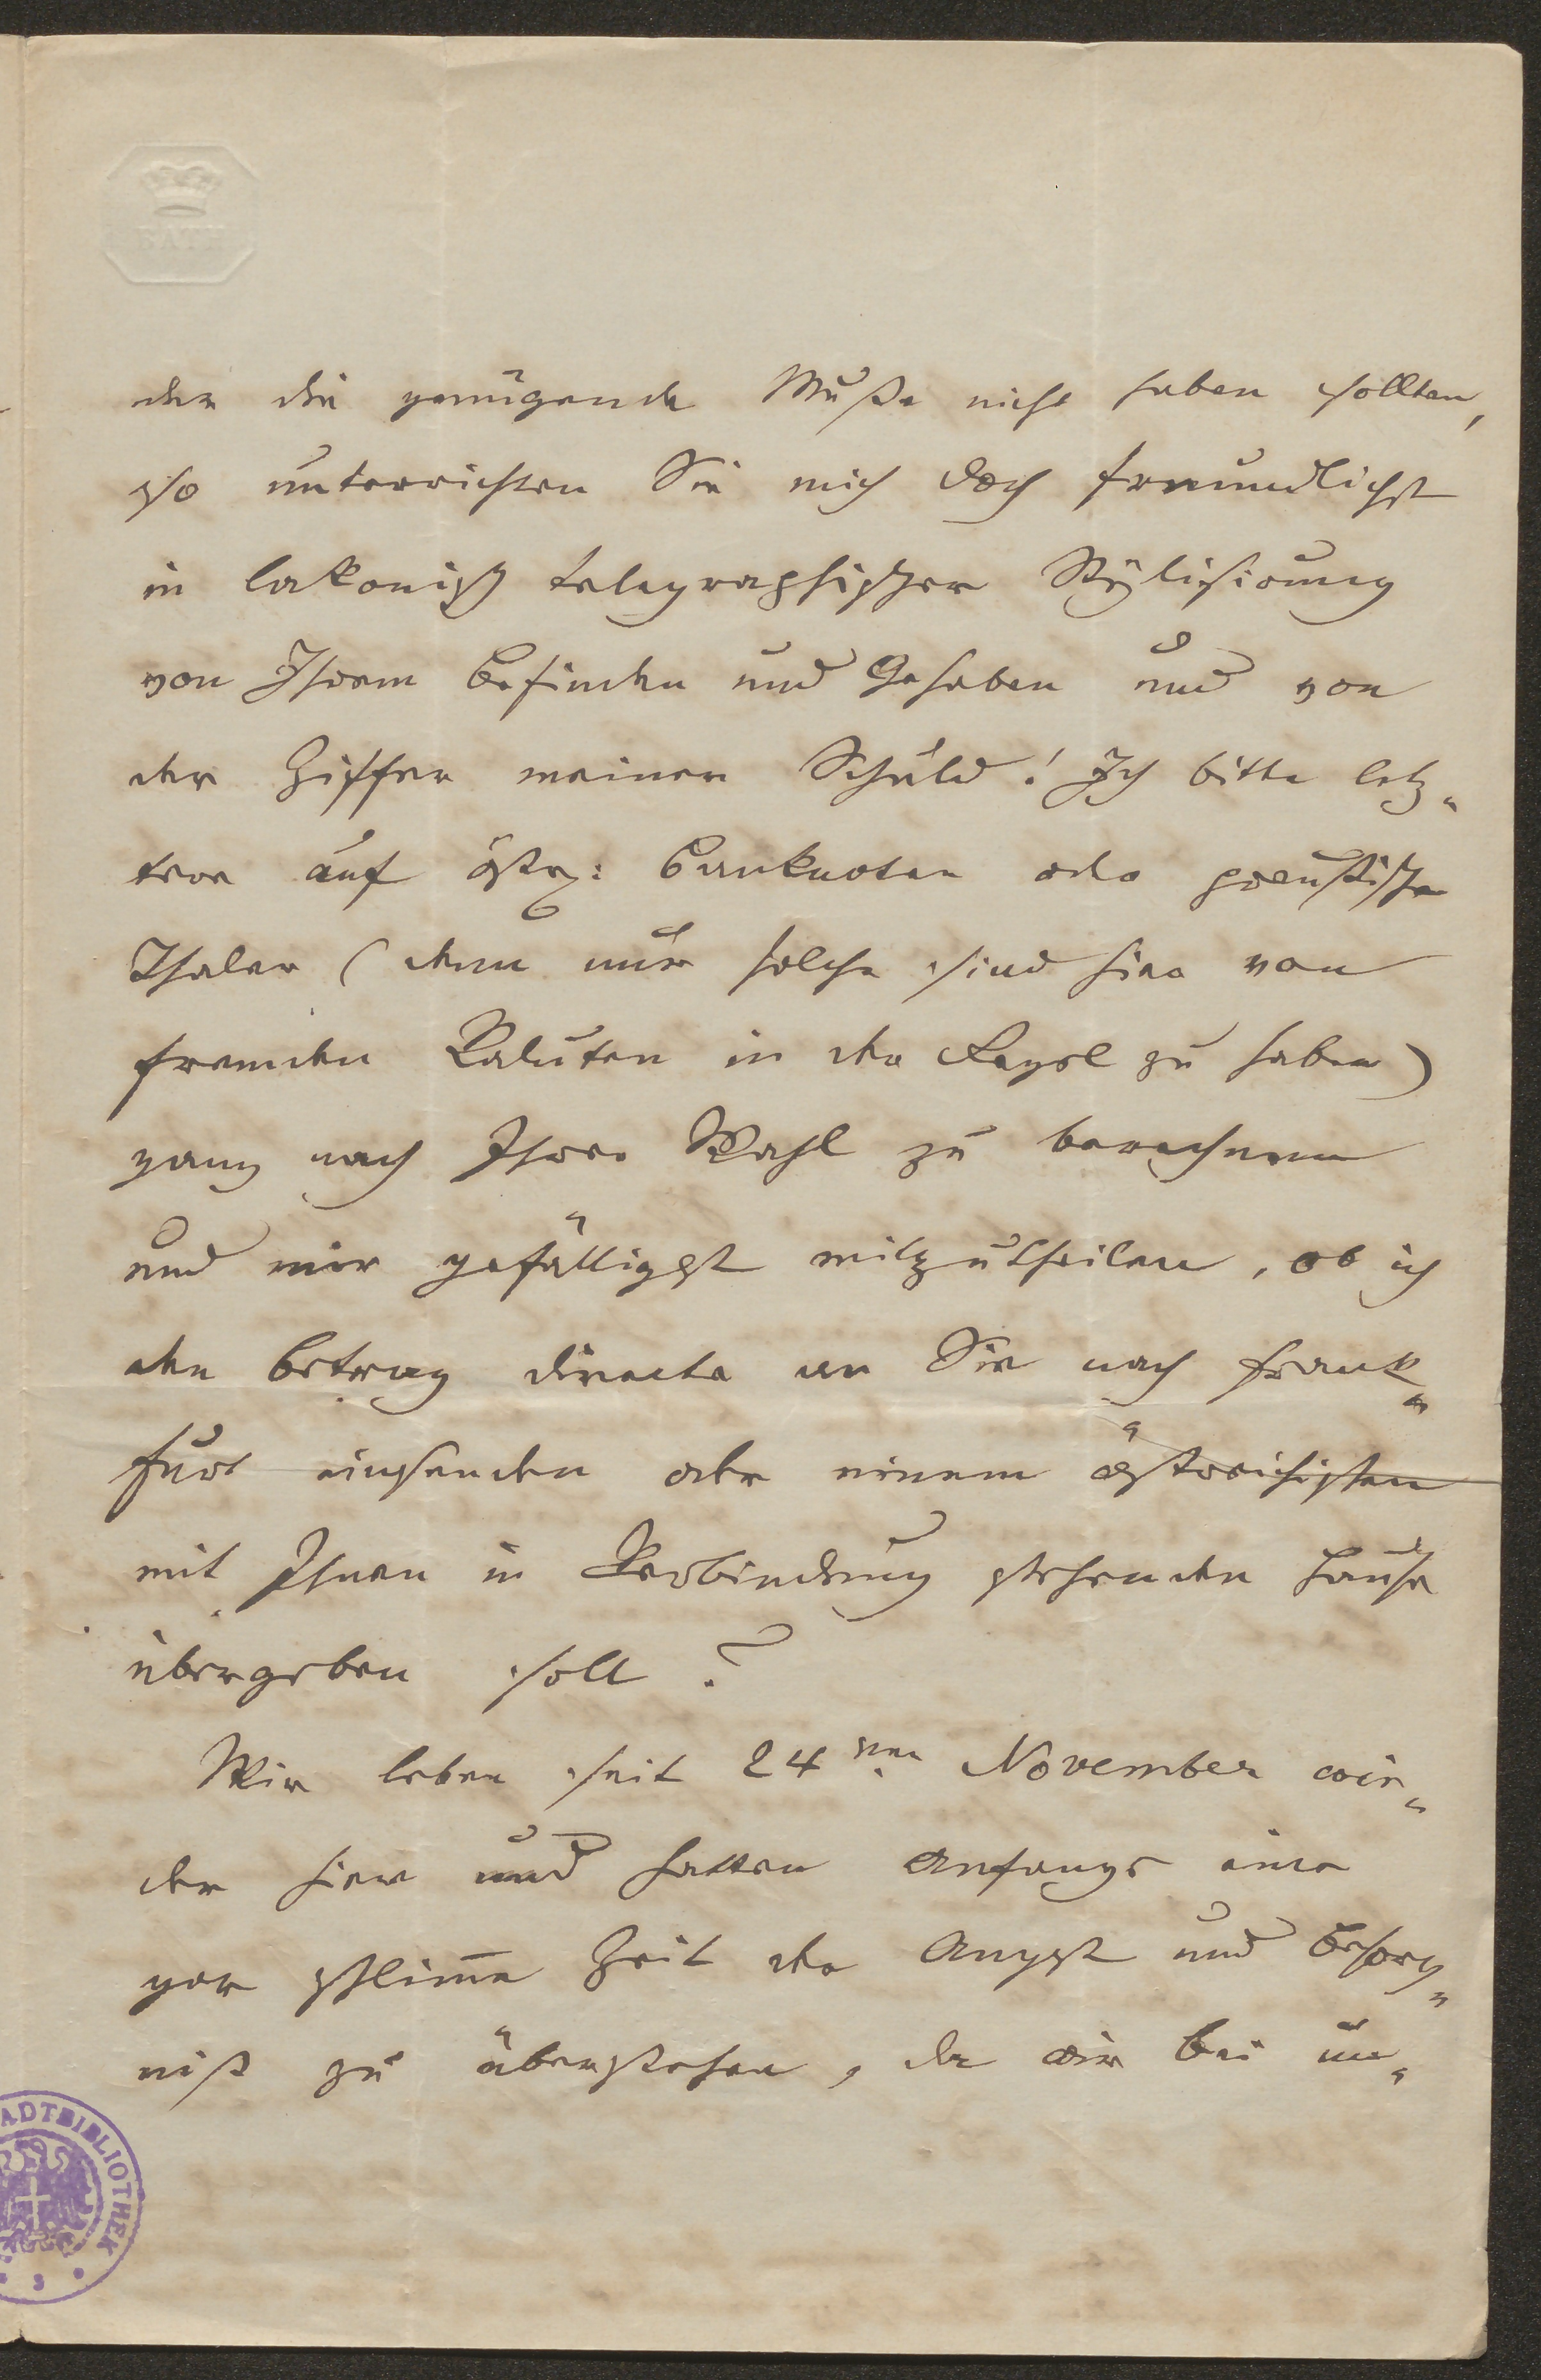 BATH
der die genügende Muße nicht haben sollten,
so unterrichten Sie mich doch freundlichst
in lakonisch telegraphischer Stÿlisirung
von Ihrem Befinden und Gehaben und von
der Ziffer meiner Schuld! Ich bitte letz„
tere auf östr: Banknoten oder preußische
Thaler (denn nur solche sind hier von
fremden Valuten in der Regel zu haben)
ganz nach Ihrer Wahl zu berechnen
und mir gefälligst mitzutheilen, ob ich
den Betrag directe an Sie nach Frank„
furt einsenden oder einem östreichischen
mit Ihnen in Verbindung stehenden Hause
übergeben soll?
Wir leben seit 24ten November wie„
der hier und hatten Anfangs eine
gar schlim̅e Zeit der Angst und Besorg„
niß zu überstehen, da wir bei un„
STADTBIBLIOTHEK